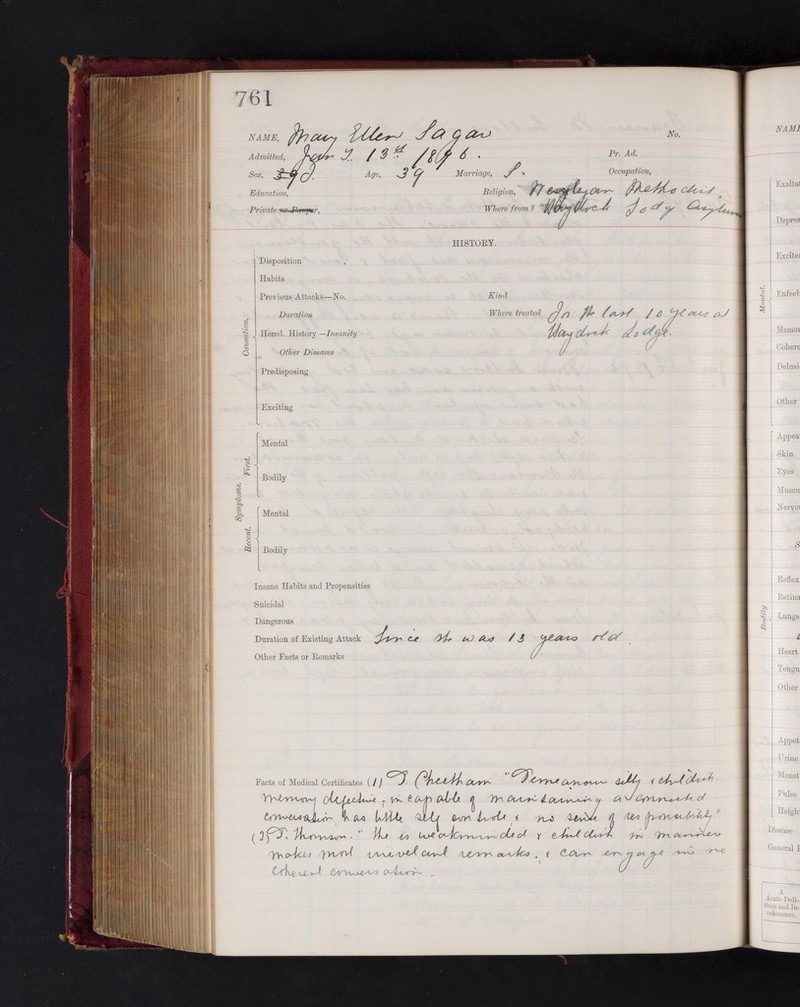 761
NAME, Mary Ellen Sagar No.
Admitted, Jan 13th 1896. Pr. Ad.
Sex, Age, 39 Marriage, S. Occupation,
Education, Religion, Wesleyan Methodist
Private or Pauper, Where from? Haydock Lodge Asylum
HISTORY.
Disposition
Habits
Previous Attacks—No. Kind
Duration Where treated For the last 10 years at
Hered. History—Insanity Haydock Lodge.
Other Diseases
Predisposing
Exciting
Causation.
Mental
Bodily
First.
Symptoms.
Mental
Bodily
Recent.
Insane Habits and Propensities
Suicidal
Dangerous
Duration of Existing Attack Since she was 13 years old.
Other Facts or Remarks
Facts of Medical Certificates (1) T. Cheetham "Demeanour silly & childish
memory defective, incapable of maintaining a connected
conversation has little self control & no sense of responsibility"
(2) T. Thomson. "She is weakminded & childish in manner
makes most irrelevant remarks. & can engage in no
coherent conversation.
NAME
Exaltat
Depres
Excite
Enfeeb
Mental.
Memor
Cohere
Delusi
Other
Appea
Skin
Eyes
Muscu
Nervou
S
Reflex
Retina
Bodily
Lungs
Heart
Tongu
Other
Appet
Urine
Menst
Pulse
Heigh
Disease
General I
A
Acute Deli-
rium and In-
coherence.